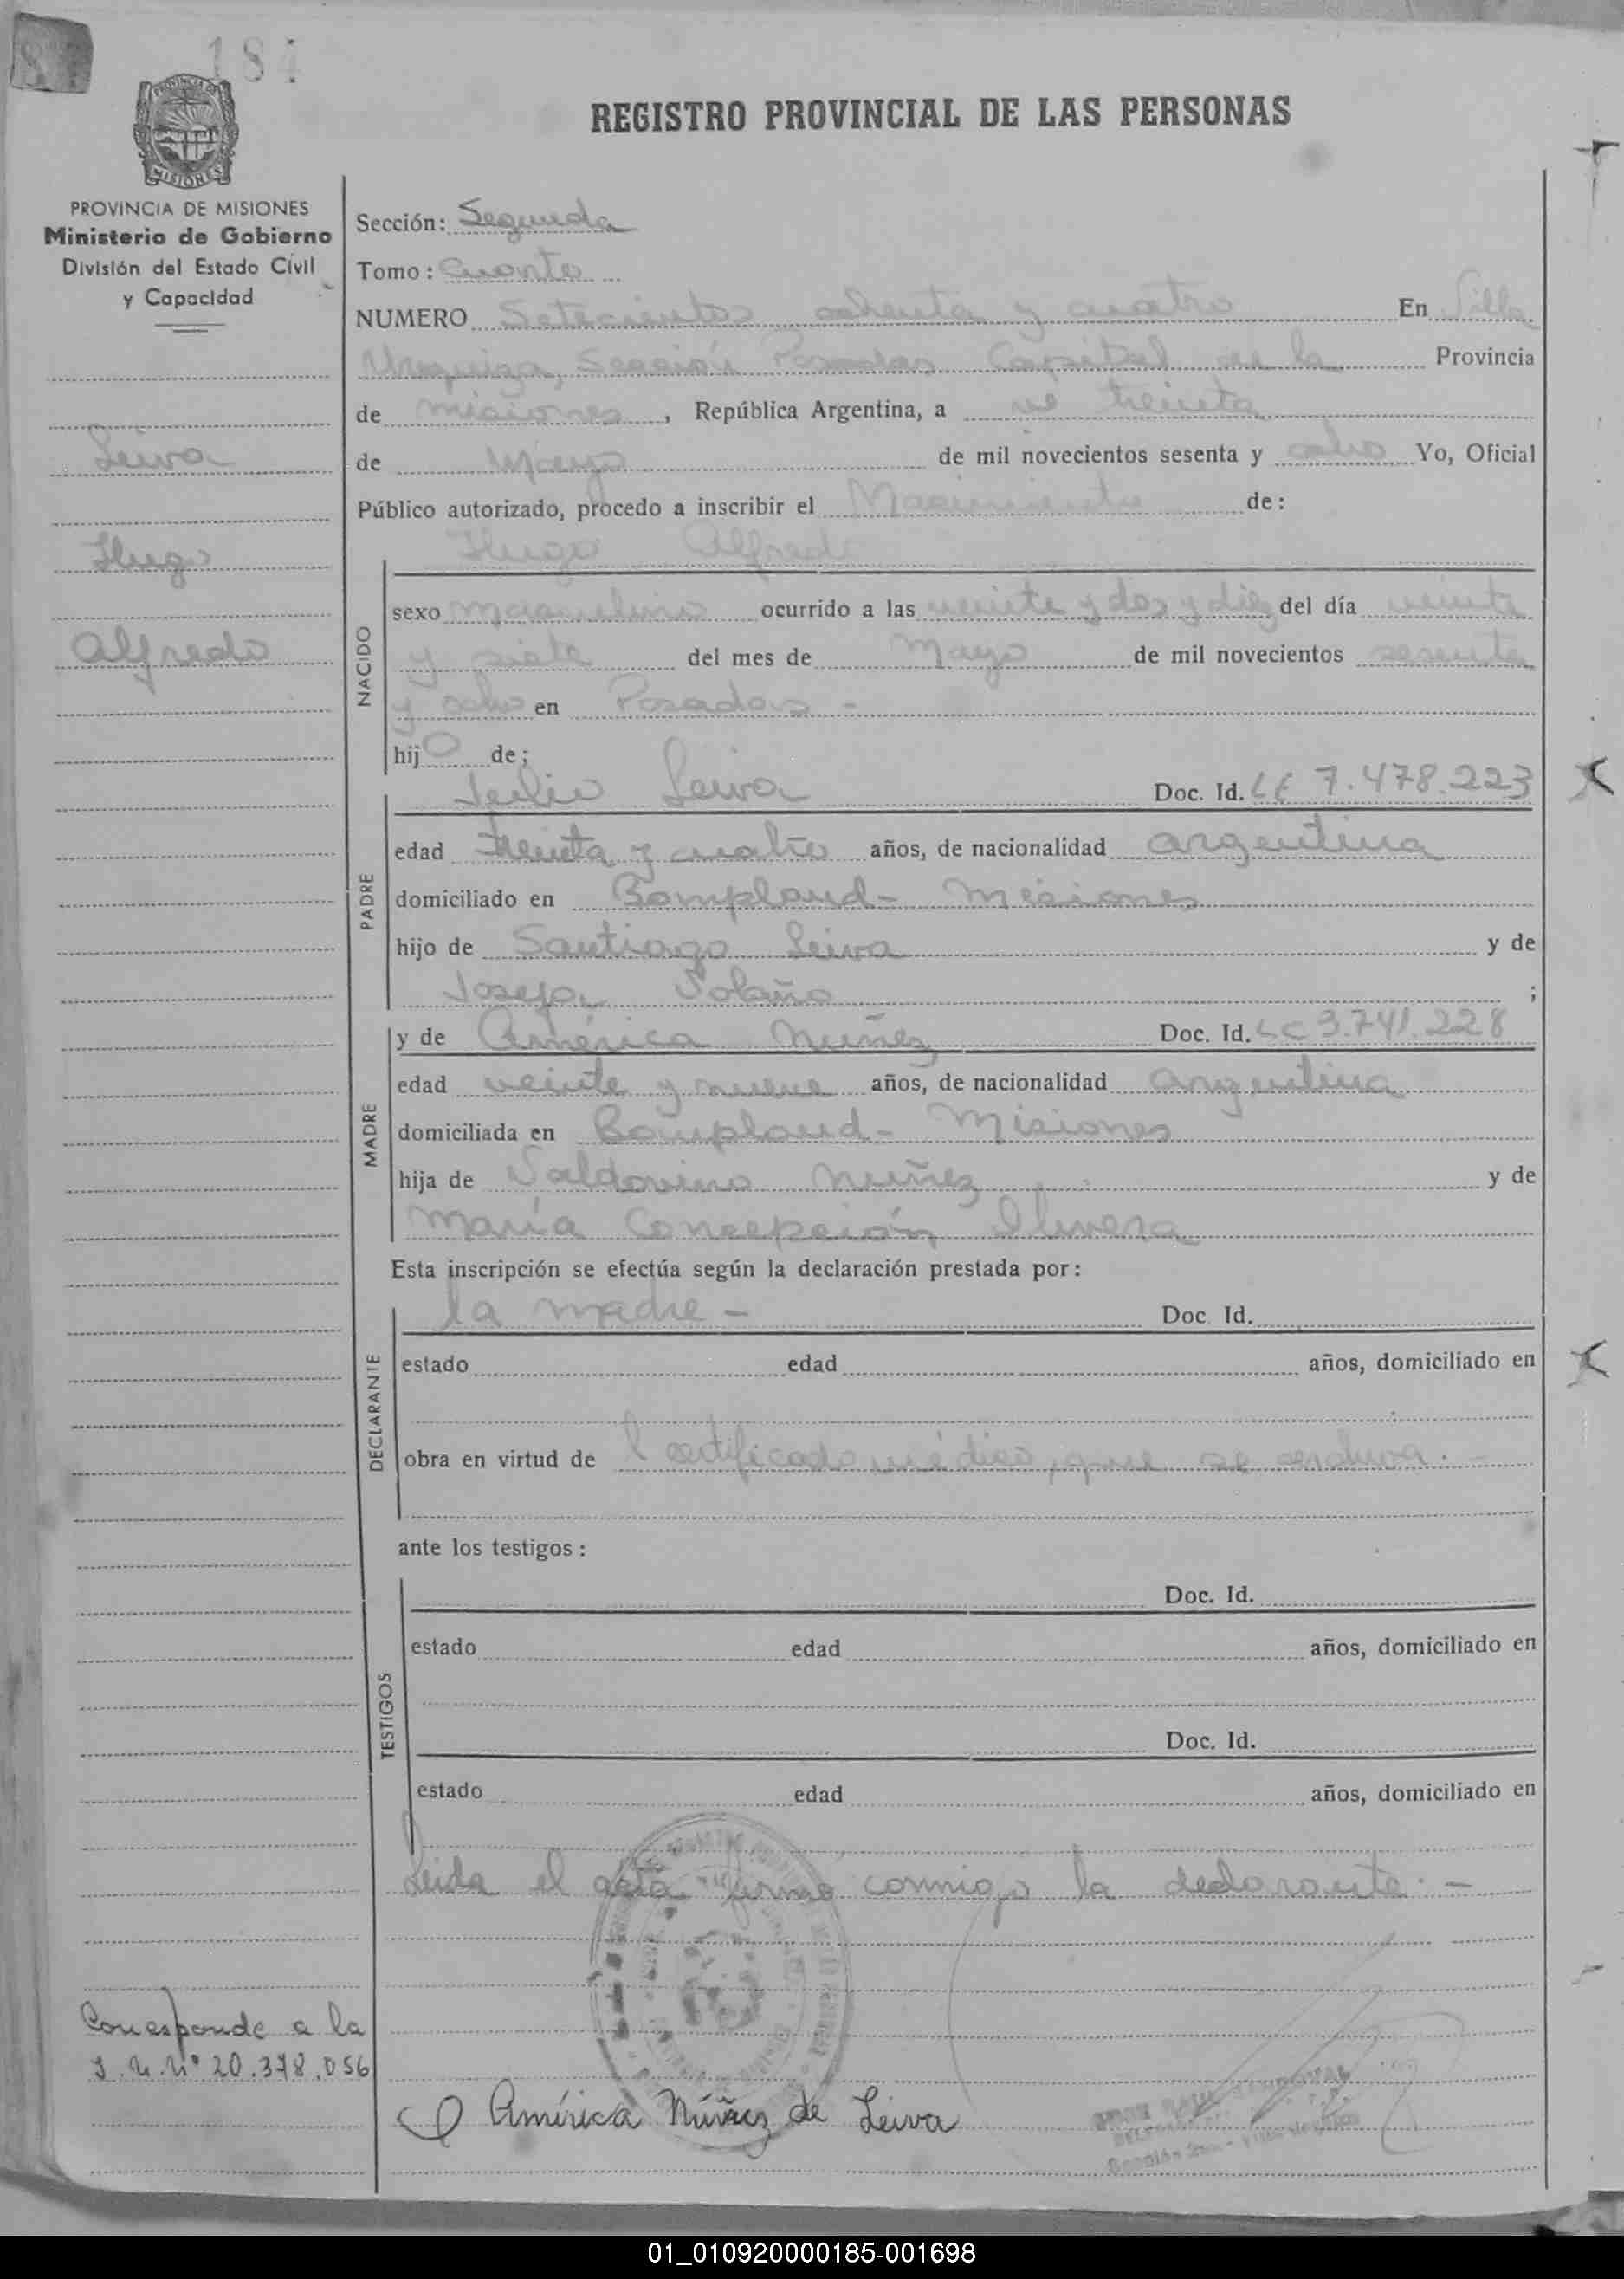 184
REGISTRO PROVINCIAL DE LAS PERSONAS
PROVINCIA DE MISIONES
Ministerio de Gobierno
División del Estado Civil
y Capacidad
Leiva
Hugo
Alfredo
Sección: Segunda
Tomo: Cuarto
NUMERO Setecientos ochenta y cuatro En Villa
Urquiza, Sección Posadas Capital de la Provincia
de Misiones, República Argentina, a treinta
de Mayo de mil novecientos sesenta y ocho Yo, Oficial
Público autorizado, procedo a inscribir el Nacimiento de:
Hugo Alfredo
NACIDO
sexo masculino ocurrido a las veinte y dos y diez del día veinte
y siete del mes de Mayo de mil novecientos sesenta
y ocho en Posadas -
hijo de;
PADRE
Julio Leiva Doc. Id. LE 7.478.223
edad treinta y cuatro años, de nacionalidad argentina
domiciliado en Bompland - Misiones
hijo de Santiago Leiva y de
Josefa ;
MADRE
y de América Nuñez Doc. Id. LC 3.741.228
edad veinte y nueve años, de nacionalidad argentina
domiciliada en Bompland - Misiones
hija de Valdovino Nuñez y de
María Concepción Olivera
Esta inscripción se efectúa según la declaración prestada por:
DECLARANTE
la madre - Doc. Id.
estado edad años, domiciliado en
obra en virtud de l certificado médico, que se archiva. -
ante los testigos:
TESTIGOS
Doc. Id.
estado edad años, domiciliado en
Doc. Id.
estado edad años, domiciliado en
Leida el acta firma conmigo la declarante. -
Corresponde a la
I. N° 20.378.056
América Núñez de Leiva
01_010920000185-001698